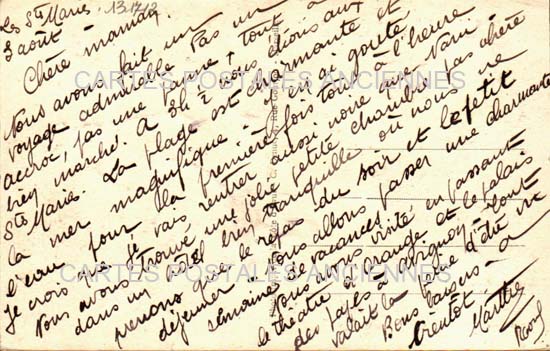 Les Stes Maries. 13
3 août -
Chère maman
Nous avons fait un
voyage admirable. Pas un
accroc, pas une panne, tout a
bien marché. A 3h ½ nous étions aux
Stes Maries. La plage est charmante et
la mer magnifique. J'en ai goûté
l'eau pour la première fois tout à l'heure
je crois que je vais rentrer aussi noire que
Nous avons trouvé une jolie petite chambre pas chère
dans un hôtel bien tranquille où nous ne
prenons que le repas du soir et le petit
déjeuner. Nous allons passer une charmante
semaine de vacances.
Nous avons visité en passant
le théâtre d'Orange et le palais
des papes à Avignon - dont
valait la peine d'être vu
Bons baisers - a
bientôt
Marthe
CARTES POSTALES ANCIENNES
CARTES POSTALES ANCIENNES